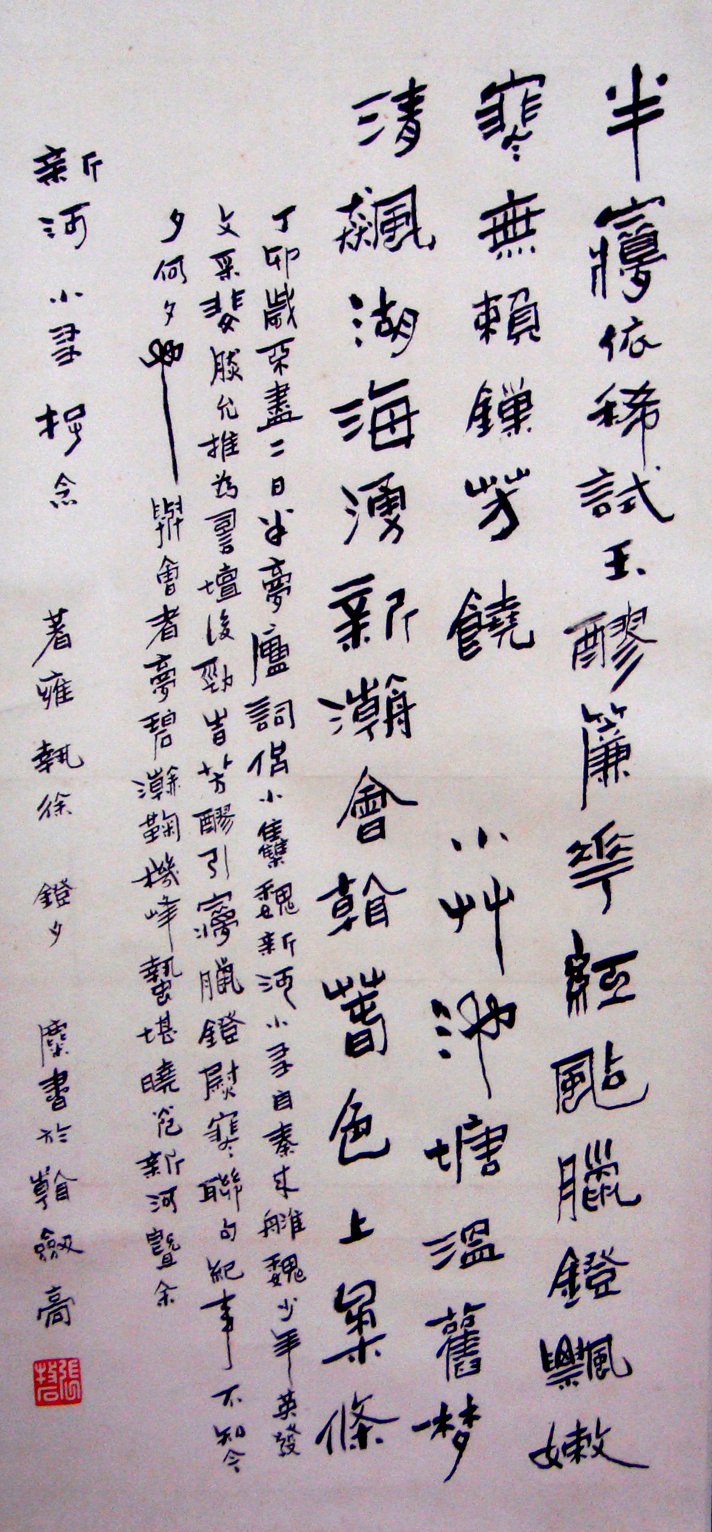 半㝱依稀試玉醪簾華紅颭臘鐙飄嫩
寒無賴鏁芳饒 小艸池塘溫舊梦
清飆湖海湧新瀚會翰蓍色上柔條
丁卯歲西盡二日半夢廬詞侶小集魏新河小弟自秦來雝魏少年英發
文采斐然允推為詞壇後勁旨芳醪引寢臘鐙慰寒聯句紀事不知今
夕何夕也 與會者夢碧瀚鞠機峰蟄堪曉菴新河暨余
新河小弟存念 著雍執徐 鐙夕 塵書於翰劍齋
張